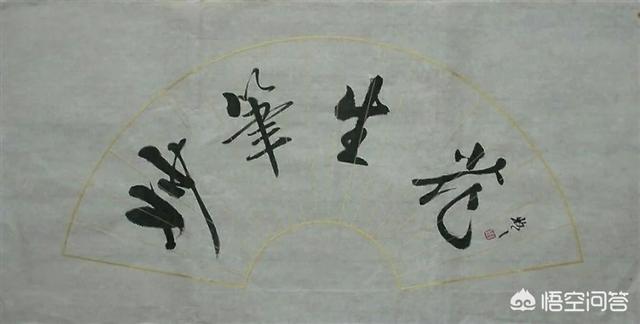 筆生花
悟空问答